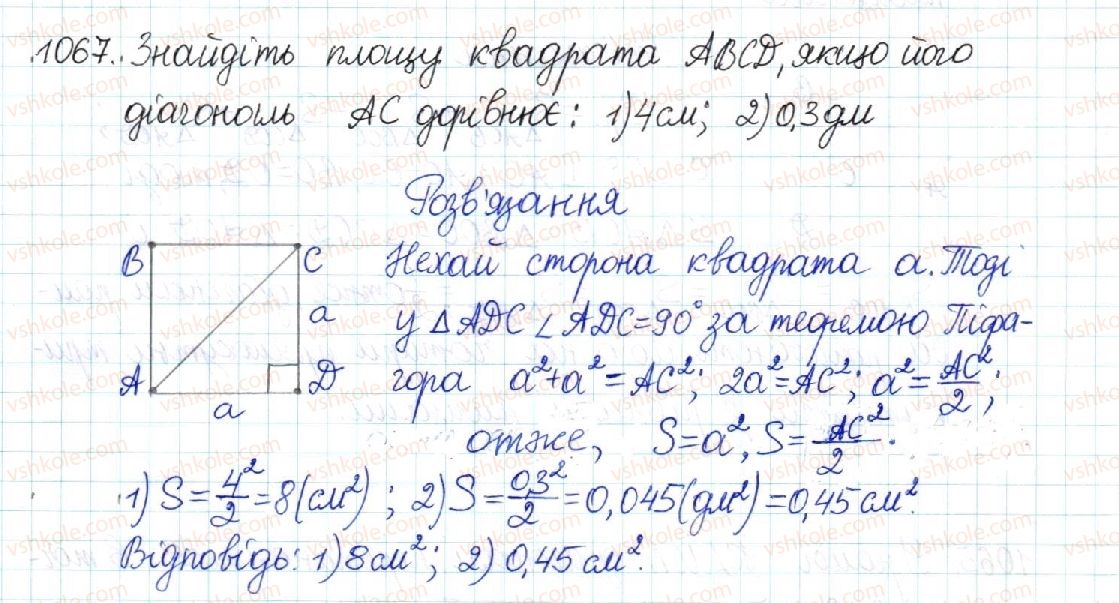 1067. Знайдіть площу квадрата ABCD, якщо його
діагональ AC дорівнює: 1) 4 см; 2) 0,3 дм
Розв'язання
B C Нехай сторона квадрата a. Тоді
a у △ADC ∠ADC=90° за теоремою Піфа-
A D гора a²+a²=AC²; 2a²=AC²; a²=AC²/2;
a
отже, S=a², S=AC²/2.
1) S=4²/2=8(см²); 2) S=0,3²/2=0,045(дм²)=0,45см².
Відповідь: 1) 8см²; 2) 0,45см².
vshkole.com